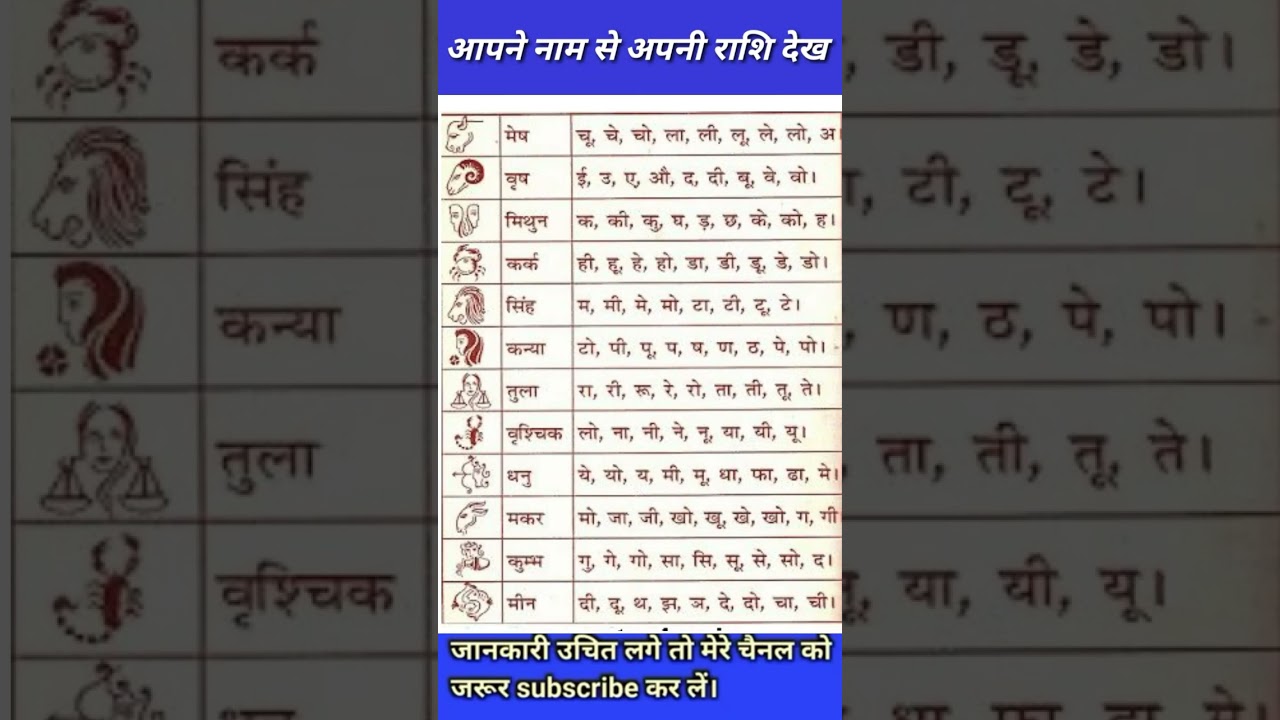 आपने नाम से अपनी राशि देख
मेष चू, चे, चो, ला, ली, लू, ले, लो, अ।
वृष ई, उ, ए, औ, द, दी, बू, वे, वो।
मिथुन क, की, कु, घ, ड़, छ, के, को, ह।
कर्क ही, हू, हे, हो, डा, डी, डू, डे, डो।
सिंह म, मी, मे, मो, टा, टी, टू, टे।
कन्या टो, पी, पू, प, ष, ण, ठ, पे, पो।
तुला रा, री, रू, रे, रो, ता, ती, तू, ते।
वृश्चिक लो, ना, नी, ने, नू, या, यी, यू।
धनु ये, यो, य, मी, मू, धा, फा, ढा, मे।
मकर मो, जा, जी, खो, खू, खे, खो, ग, गी
कुम्भ गु, गे, गो, सा, सि, सू, से, सो, द।
मीन दी, दू, थ, झ, ञ, दे, दो, चा, ची।
जानकारी उचित लगे तो मेरे चैनल को
जरूर subscribe कर लें।
कर्क डी, डू, डे, डो।
सिंह टी, टू, टे।
कन्या ण, ठ, पे, पो।
तुला ता, ती, तू, ते।
वृश्चिक या, यी, यू।